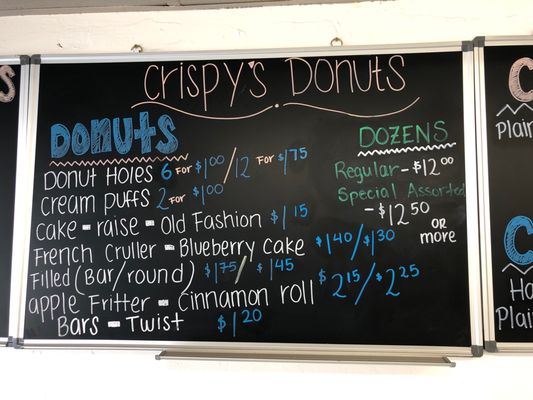 Crispy's Donuts
DONUTS
Donut Holes 6 for $1.00/12 for $1.75
Cream Puffs 2 for $1.00
Cake - raise - Old Fashion $1.15
French Cruller - Blueberry Cake $1.40/$1.30
Filled (Bar/round) $1.75/$1.45
apple Fritter - Cinnamon roll $2.15/$2.25
Bars - Twist $1.20
DOZENS
Regular - $12.00
Special Assorted
- $12.50 OR
more
C
Plain
C
Ha
Plain